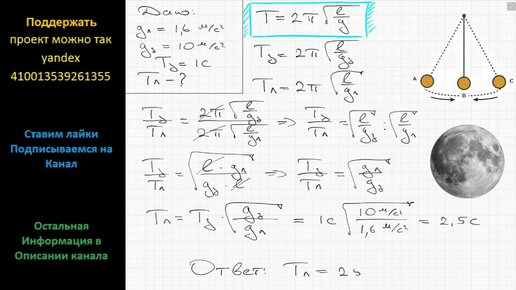 Поддержать
проект можно так
yandex
410013539261355
Ставим лайки
Подписываемся на
Канал
Остальная
Информация в
Описании канала
Дано:
gл = 1,6 м/с²
gз = 10 м/с²
Tз = 1с
Tл - ?
T = 2π√(l/g)
Tз = 2π√(l/gз)
Tл = 2π√(l/gл)
Tз/Tл = 2π√(l/gз) / 2π√(l/gл) => Tз/Tл = √(l/gз) : √(l/gл)
Tз/Tл = √(l · gл / gз · l) => Tз/Tл = √(gл/gз)
Tл = Tз √(gз/gл) = 1с √(10 м/с² / 1,6 м/с²) = 2,5с
Ответ: Tл = 2
A
B
C